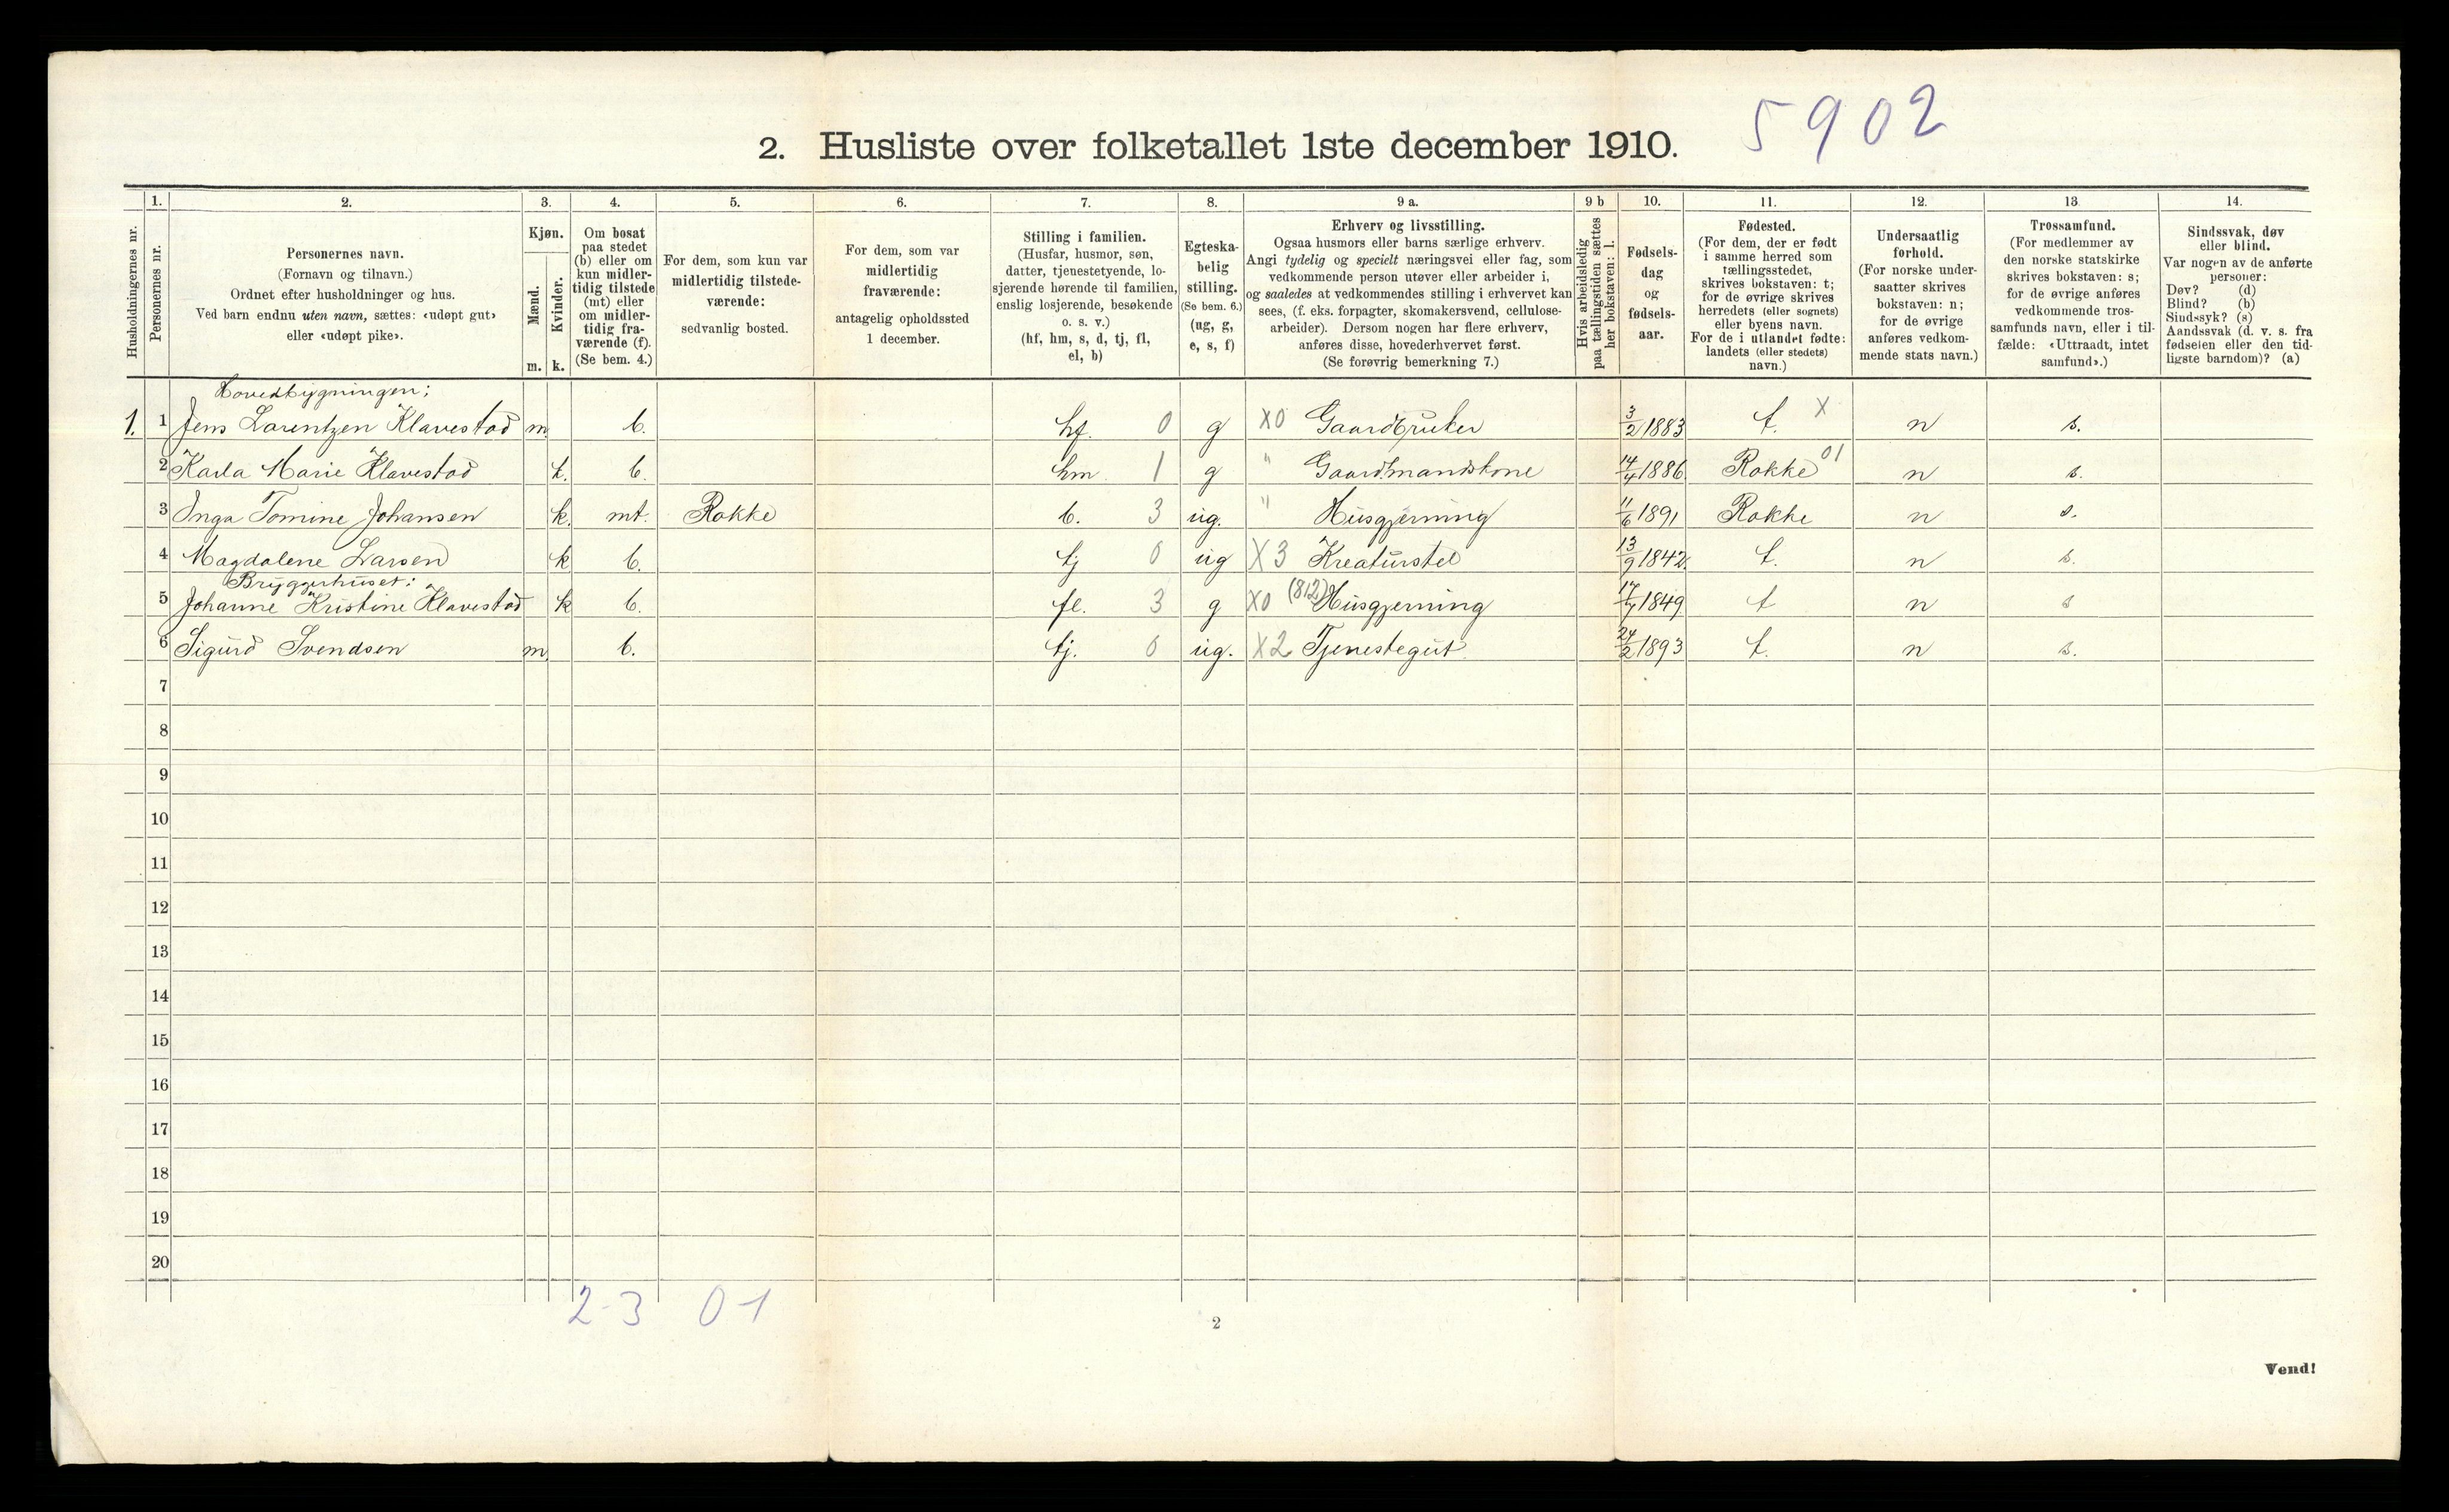 5902
2. Husliste over folketallet 1ste december 1910.
Husholdningernes nr.
1.
Personernes nr.
2.
Personernes navn.
(Fornavn og tilnavn.)
Ordnet efter husholdninger og hus.
Ved barn endnu uten navn, sættes: «udøpt gut»
eller «udøpt pike».
3.
Kjøn.
Mænd.
m.
Kvinder.
k.
4.
Om bosat
paa stedet
(b) eller om
kun midler-
tidig tilstede
(mt) eller
om midler-
tidig fra-
værende (f).
(Se bem. 4.)
5.
For dem, som kun var
midlertidig tilstede-
værende:
sedvanlig bosted.
6.
For dem, som var
midlertidig
fraværende:
antagelig opholdssted
1 december.
7.
Stilling i familien.
(Husfar, husmor, søn,
datter, tjenestetyende, lo-
sjerende hørende til familien,
enslig losjerende, besøkende
o. s. v.)
(hf, hm, s, d, tj, fl,
el, b)
8.
Egteska-
belig
stilling.
(Se bem. 6.)
(ug, g,
e, s, f)
9 a.
Erhverv og livsstilling.
Ogsaa husmors eller barns særlige erhverv.
Angi tydelig og specielt næringsvei eller fag, som
vedkommende person utøver eller arbeider i,
og saaledes at vedkommendes stilling i erhvervet kan
sees, (f. eks. forpagter, skomakersvend, cellulose-
arbeider). Dersom nogen har flere erhverv,
anføres disse, hovederhvervet først.
(Se forøvrig bemerkning 7.)
9 b
Hvis arbeidsledig
paa tællingstiden sættes
her bokstaven: l.
10.
Fødsels-
dag
og
fødsels-
aar.
11.
Fødested.
(For dem, der er født
i samme herred som
tællingsstedet,
skrives bokstaven: t;
for de øvrige skrives
herredets (eller sognets)
eller byens navn.
For de i utlandet fødte:
landets (eller stedets)
navn.)
12.
Undersaatlig
forhold.
(For norske under-
saatter skrives
bokstaven: n;
for de øvrige
anføres vedkom-
mende stats navn.)
13.
Trossamfund.
(For medlemmer av
den norske statskirke
skrives bokstaven: s;
for de øvrige anføres
vedkommende tros-
samfunds navn, eller i til-
fælde: «Uttraadt, intet
samfund».)
14.
Sindssvak, døv
eller blind.
Var nogen av de anførte
personer:
Døv? (d)
Blind? (b)
Sindssyk? (s)
Aandssvak (d. v. s. fra
fødselen eller den tid-
ligste barndom)? (a)
Hovedbygningen;
1. 1 Jens Lorentzen Klavestad m b. hf. 0 g X0 Gaardbruker 3/2 1883 t. X n s.
2 Karla Marie Klavestad k. b. hm. 1 g " Gaardmandskone 14/4 1886. Rokke 01 n s.
3 Inga Tomine Johansen k. mt. Rokke b. 3 ug. " Husgjerning 11/6 1891 Rokke n s.
4 Magdalene Larsen k b. tj 0 ug X3 Kreaturstel 13/9 1842. t. n s.
Bryggerhuset:
5 Johanne Kristine Klavestad k b. fl. 3 g X0 (812) Husgjerning 17/7 1849. t n s
6 Sigurd Svendsen m b. tj. 0 ug. X2 Tjenestegut 24/2 1893 t. n s.
7
8
9
10
11
12
13
14
15
16
17
18
19
20
2-3 0-1
2
Vend!